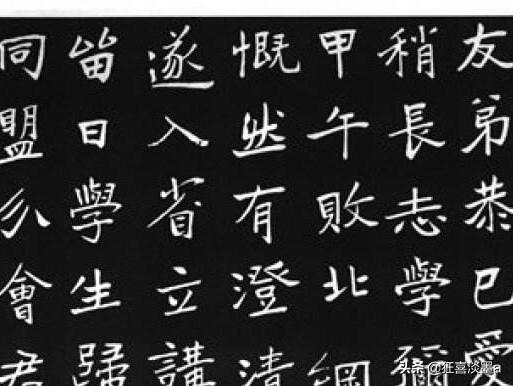 友弟恭已
稍長志學
甲午敗北
慨然有澄清
遂入省立講
留日學生歸
同盟分會君
头条 @狂喜淡墨a